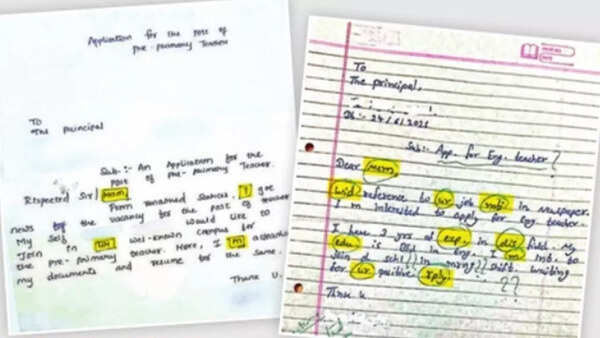 Application for the post of
pre-primary Teacher
To
The principal
Sub:- An Application for the
post of pre-primary Teacher.
Respected Sir/ Mam
From renamed sources, I got
news of the vacancy for the post of teacher
My Self would like to
Join in UR wel-known campus for
the Pre-primary teacher. Here, I m attached
my documents and resume for the same.
Thank U.
To
The principal,
Dt:- 24/6/2021
Sub:- App. for Eng. teacher
Dear Mam,
Wid reference to ur job notic in newspaper
I m interested to apply for Eng. teacher.
I have 3 yrs of exp. in dis field. My
edu. is BSc in Eng. I m int. to
Join d schl in mrng shift. Waiting
for ur positive rply. ??
Thank u